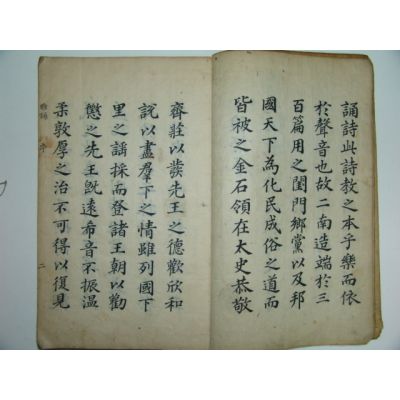 誦詩此詩教之本乎樂而依
於聲音也故二南造端於三
百篇用之閨門鄉黨以及邦
國天下為化民成俗之道而
皆被之金石領在太史恭敬
齊莊以發先王之德歡欣和
說以盡羣下之情雖列國下
里之謡採而登諸王朝以勸
懲之先王旣遠希音不振溫
柔敦厚之治不可得以復見
序
二